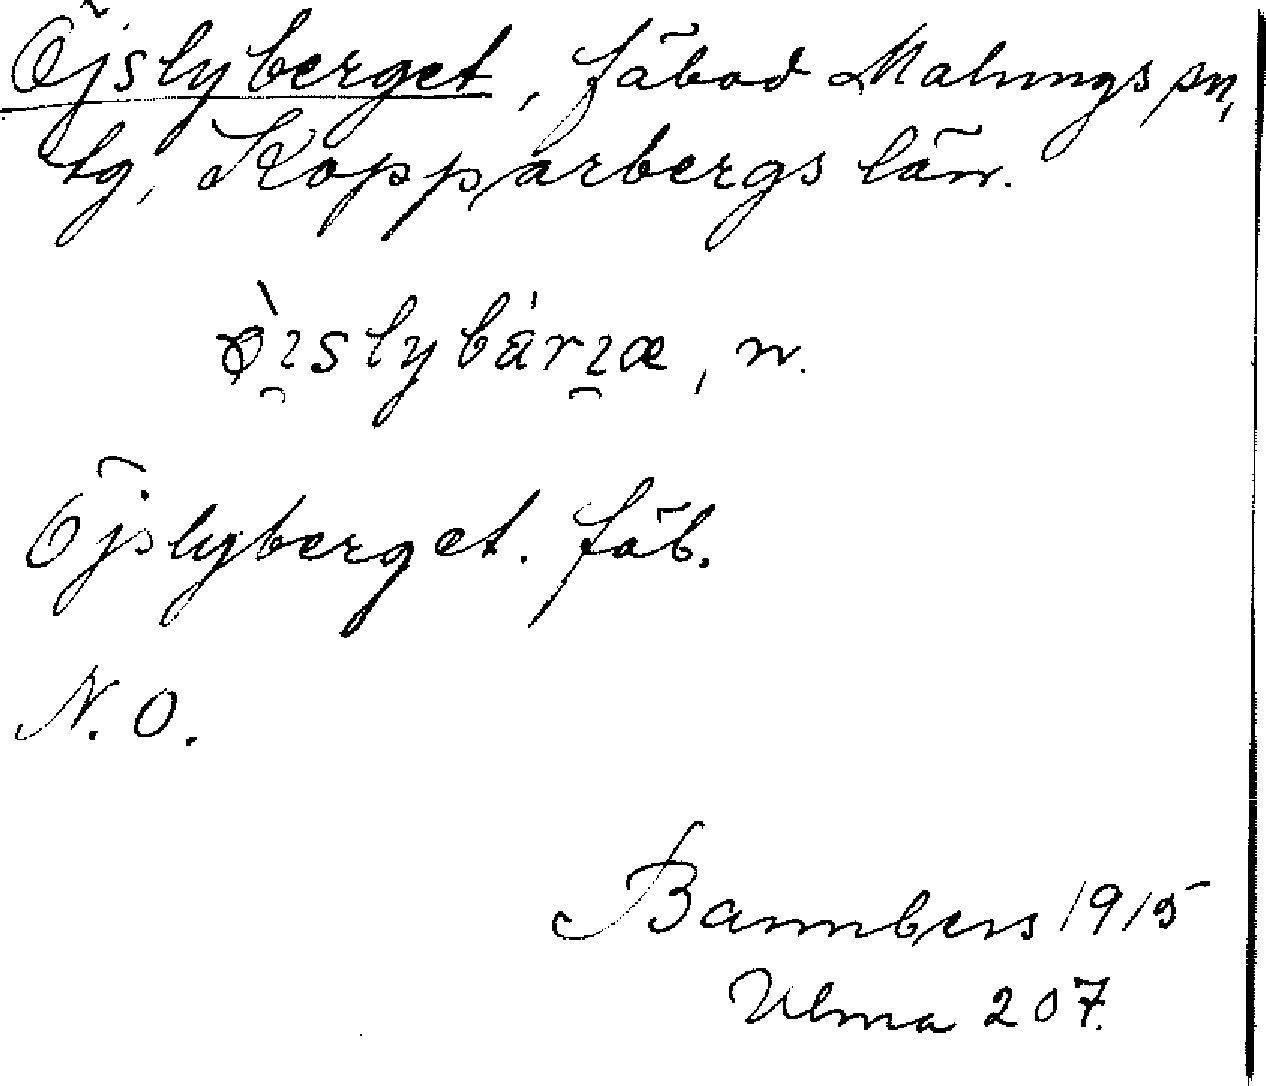 Öjslyberget, fäbod Malungs sn,
tg, Kopparbergs län.
n.
Öjslyberget. fäb.
N. O.
Bannbers 1915
Ulma 207.